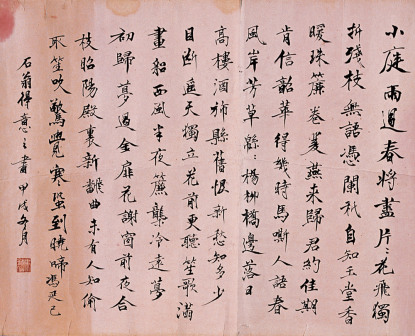 小庭雨過春將盡片〻花飛獨
折殘枝無語憑闌祇自知玉堂香
暖珠簾卷雙燕來歸君約佳期
肯信韶華得幾時馬嘶人語春
風岸芳草綿〻楊柳橋邊落日
高樓酒旆懸舊恨新愁知多少
目斷遙天獨立花前更聽笙歌滿
畫船西風半夜簾櫳冷遠夢
初歸夢過金扉花謝窗前夜合
枝昭陽殿裏新翻曲未有人知偷
取笙吹驚覺寒蛩到曉啼馮延巳
石翁得意之書甲戌冬月